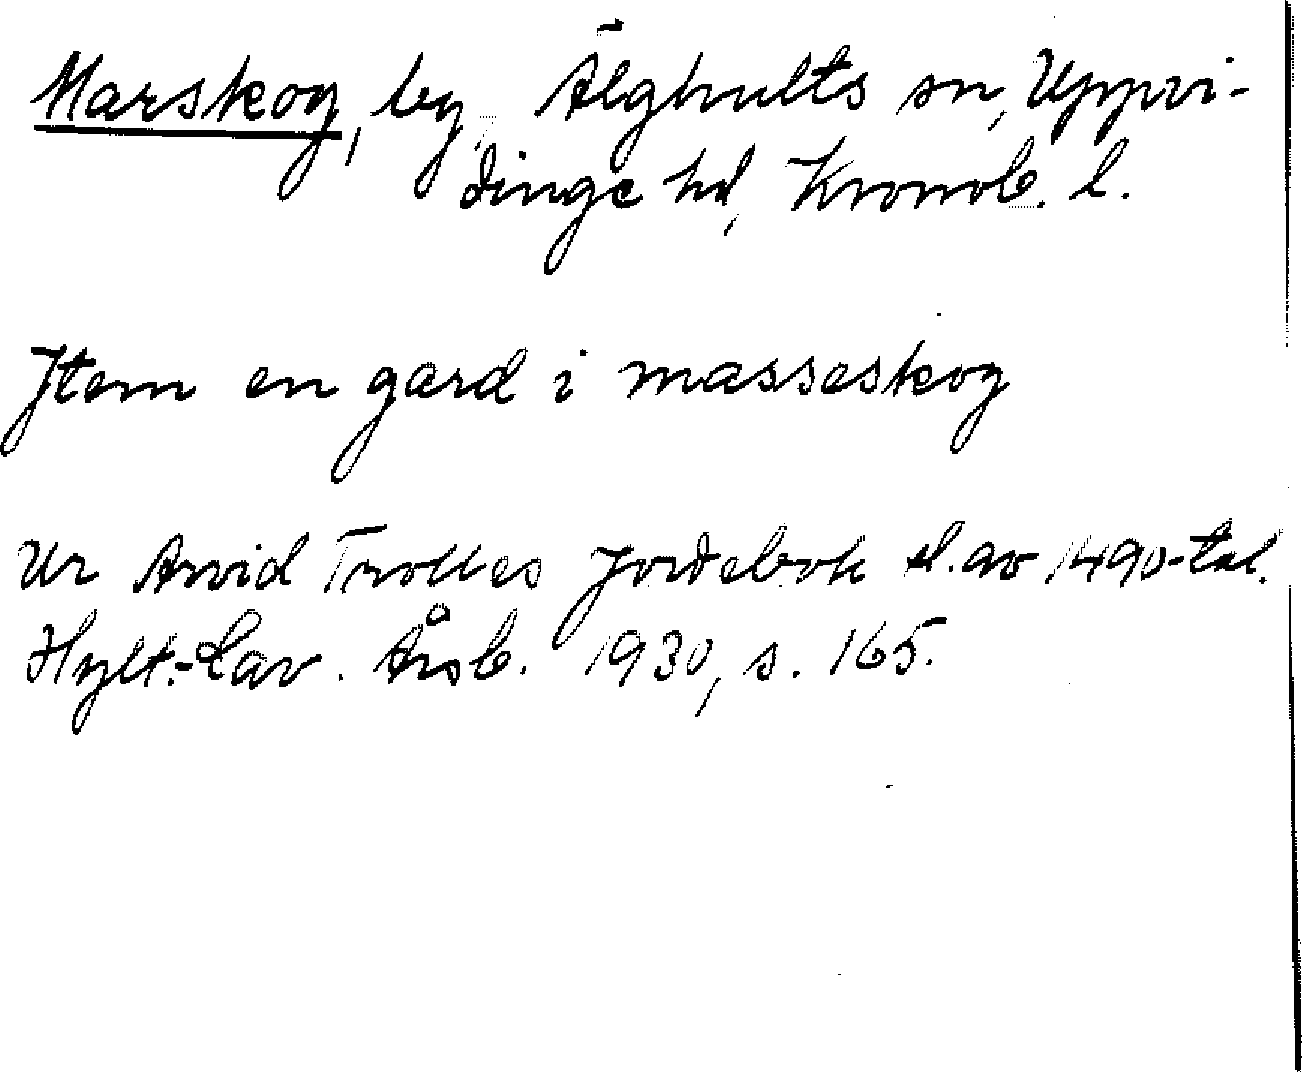 Marskog, by, Älghults sn, Uppvi-
dinge hd, Kronob. l.
Jtem en gard i masseskog
Ur Arvid Trolles Jordebok sl. av 1490-tal.
Hylt.-Cav. Årsb. 1930, s. 165.